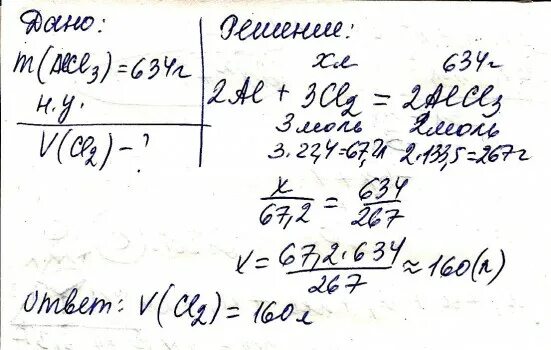 Дано:
m(AlCl3)=634г
н.у.
V(Cl2)-?
Решение:
хл 634г
2Al + 3Cl2 = 2AlCl3
3моль 2моль
3·22,4=67,2л 2·133,5=267г
x/67,2 = 634/267
x = 67,2·634/267 ≈ 160(л)
Ответ: V(Cl2) = 160л